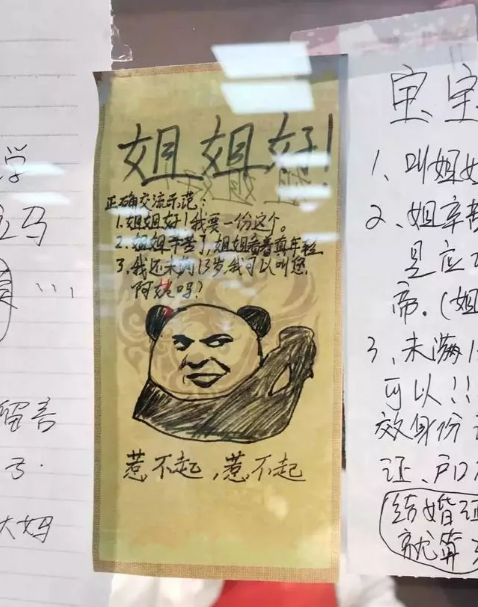 学
马
留言
大妈
姐姐好!
正确交流示范:
1.姐姐好!我要一份这个。
2.姐姐辛苦了,姐姐看着真年轻
3.我还未满13岁,我可以叫您
阿姨吗?
惹不起,惹不起
宝宝
1、叫姐姐
2、姐辛苦
是应
帝.(姐
3、未满1
可以!!
效身份
证、户口
结婚证
就算